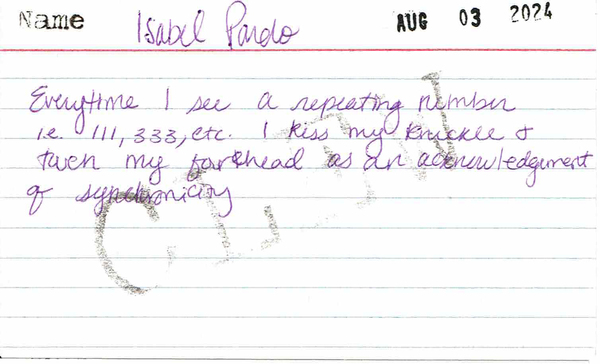 Name Isabel Pardo AUG 03 2024
Everytime I see a repeating number
i.e. 111, 333, etc. I kiss my knuckle &
touch my forehead as an acknowledgement
of synchronicity